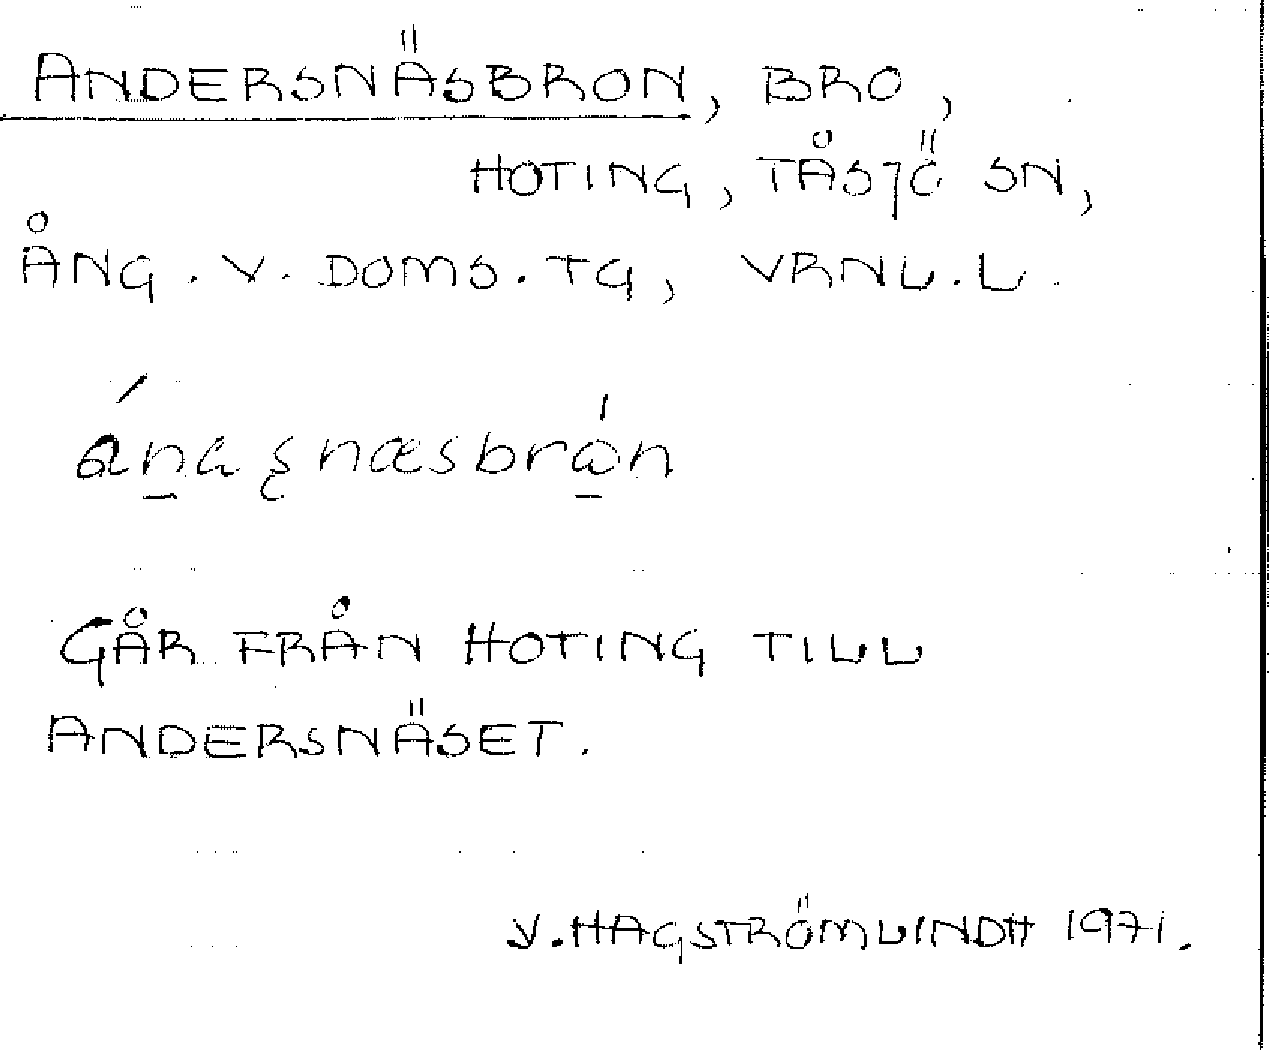 ANDERSNÄSBRON, BRO,
HOTING, TÅSJÖ SN,
ÅNG. V. DOMS. TG, VRNL. L.
GÅR FRÅN HOTING TILL
ANDERSNÄSET.
V. HAGSTRÖM LINDH 1971.